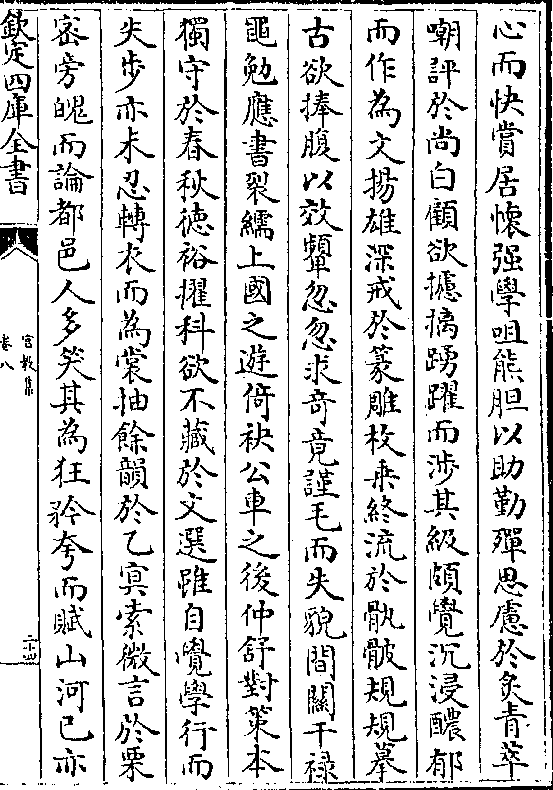 心而快賞居懷强學咀熊胆以助勤殫思慮於炙青萃
嘲評於尚白顧欲攄摛踴躍而涉其級頗覺沉浸醲郁
而作為文揚雄深戒於篆雕枚乗終流於骫骳規規摹
古欲捧腹以效顰忽忽求竒竟謹毛而失貌間關干祿
黽勉應書裂繻上國之遊倚袂公車之後仲舒對策本
獨守於春秋德裕擢科欲不藏於文選雖自覺學行而
失步亦未忍轉衣而為裳抽餘韻於乙㝠索微言於栗
宻旁睨而論都邑人多笑其為狂矜夸而賦山河已亦
欽定四庫全書
宫教集
卷八
二十四